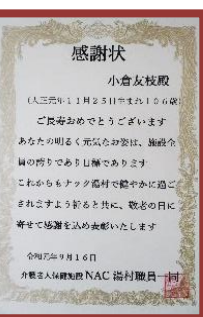 感謝状
小倉友枝殿
(大正元年11月25日生まれ106歳)
ご長寿おめでとうございます
あなたの明るく元気なお姿は、施設全
員の誇りであり目標であります
これからもナック湯村で健やかに過ご
されますよう祈ると共に、敬老の日に
寄せて感謝を込め表彰いたします
令和元年9月16日
介護老人保健施設 NAC 湯村職員一同